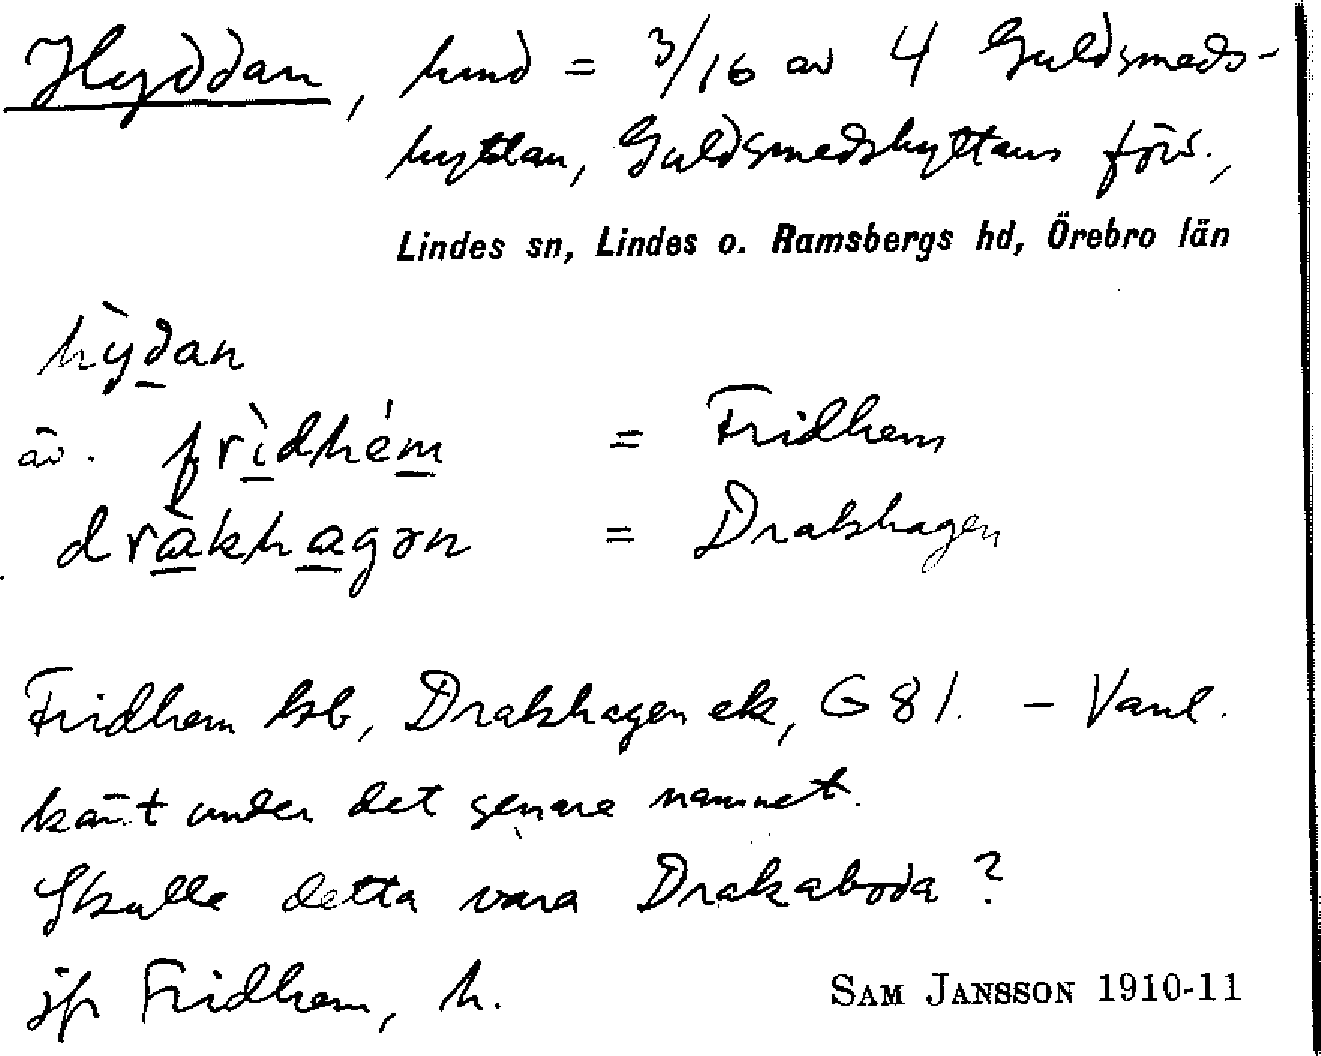 Hyddan, hmd = 3/16 av 4 Guldsmeds-
hyttan, Guldsmedshyttans förs.,
Lindes sn, Lindes o. Ramsbergs hd, Örebro län
hỳdan
äv. frìdhém = Fridhem
dràkhagən = Drakhagen
Fridhem bb, Drakhagen ek, G 81. – Vanl.
känt under det senare namnet.
Skulle detta vara Drakaboda?
jfr Fridhem, h.
SAM JANSSON 1910-11